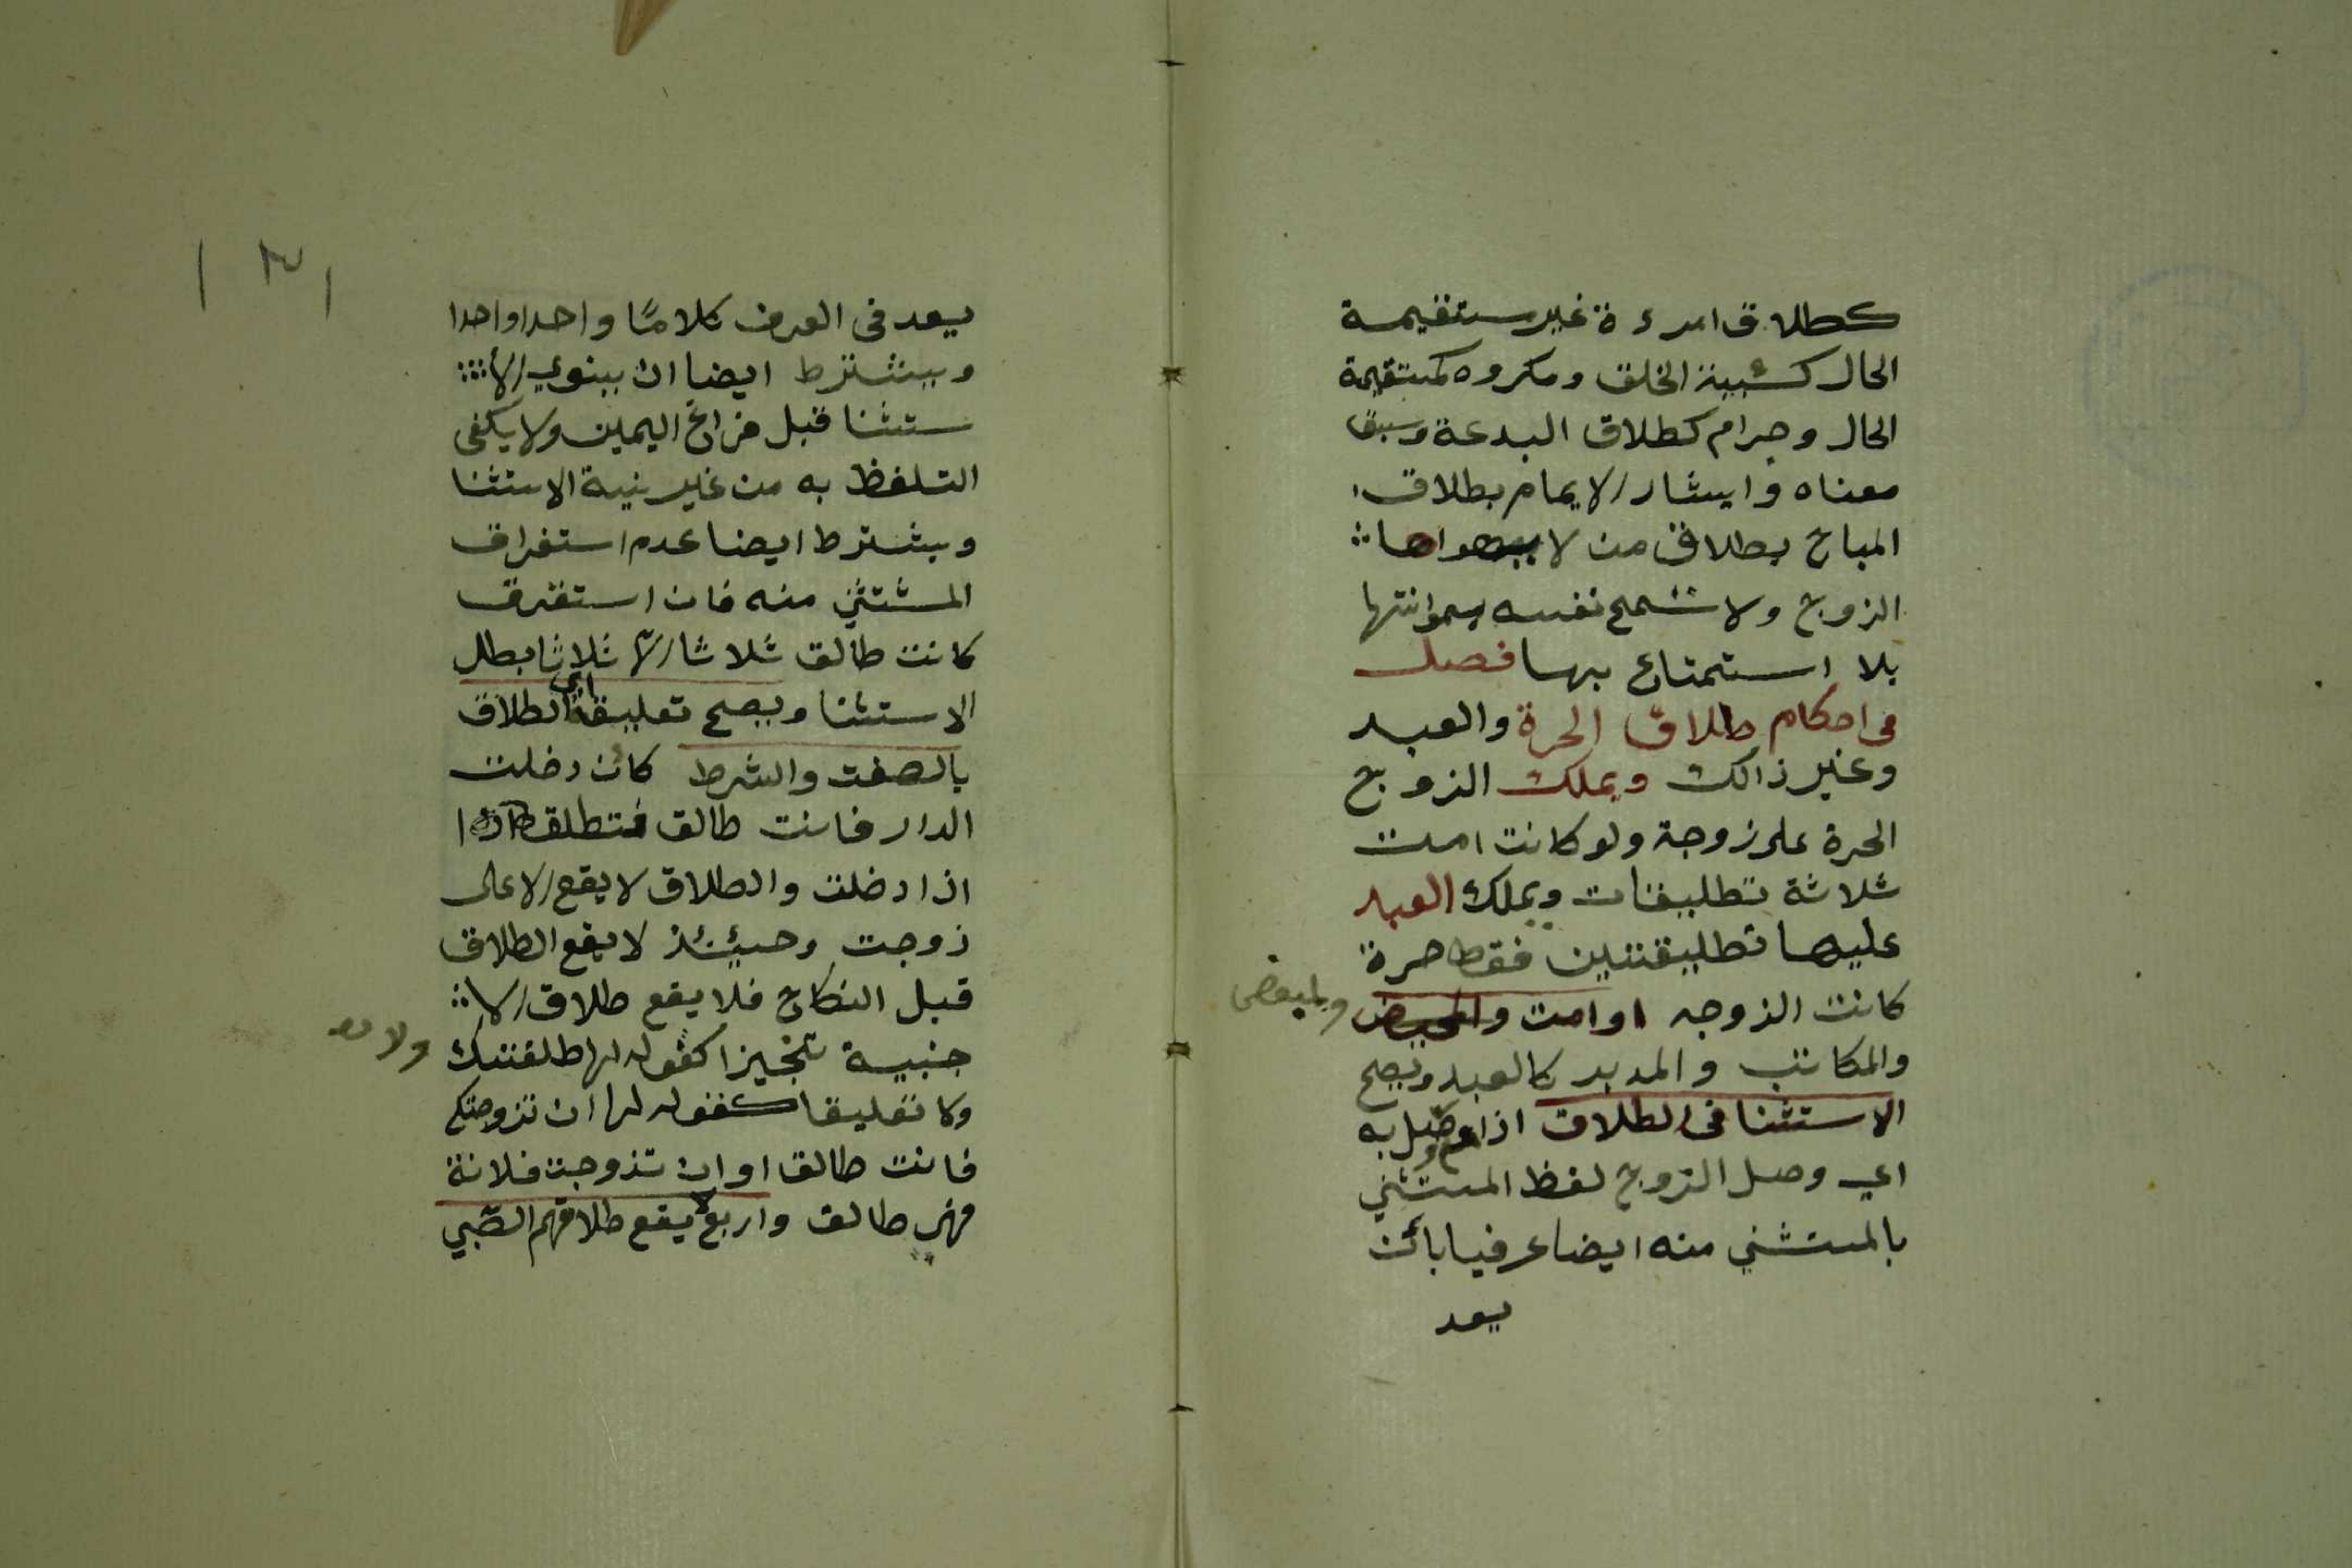 كطلاق امرءة غير ستقيمة
الحال كسئيت الخلق ومكروه كمستقيمة
الحال وحرام كطلاق البدعة وسبق
معناه وايشار الايمام بطلاق
المباح بطلاق من لا يهواها
الزوج ولا تسمح نفسه بموانتها
بلا استمتاع بها فصل
فى احكام طلاق الحرة والعبد
وغير ذالك ويملك الزوج
الحرة على زوجة ولو كانت امت
ثلاثة تطليقات ويملك العبد
عليها تطليقتين فقط حرة
كانت الزوجه اوامت والمبعض
والمبعض
والمكاتب والمدبر كالعبد ويصح
الاستثنا فى الطلاق اذا وصل به
اي وصل الزوج لفظ المستثني
بالمستثني منه ايضا عرفيا بائن
يعد
١٣١
يعد فى العرف كلامًا واحدا واحدا
ويشترط ايضا ان ينوي الا
ستثنا قبل فراغ اليمين ولا يكفى
التلفظ به من غير نية الاستثنا
ويشترط ايضا عدم استغراق
المستثني منه فان استغرق
كانت طالق ثلاثا الا ثلاثا بطل
الاستثنا ويصح تعليقه اي الطلاق
بالصفت والشرط كائن دخلت
الدار فانت طالق فتطلق
اذا دخلت والطلاق لا يقع الا على
زوجت وحيئئذ لا يقع الطلاق
قبل النكاح فلا يقع طلاق الا
جنبية تنجيزا كقوله لها طلقتك
ولا
وكا تعليقا كقوله لها ان تزوجتكي
فانت طالق او ان تذوجت فلانة
فهي طالق واربع لا يقع طلاقهم الصّبي